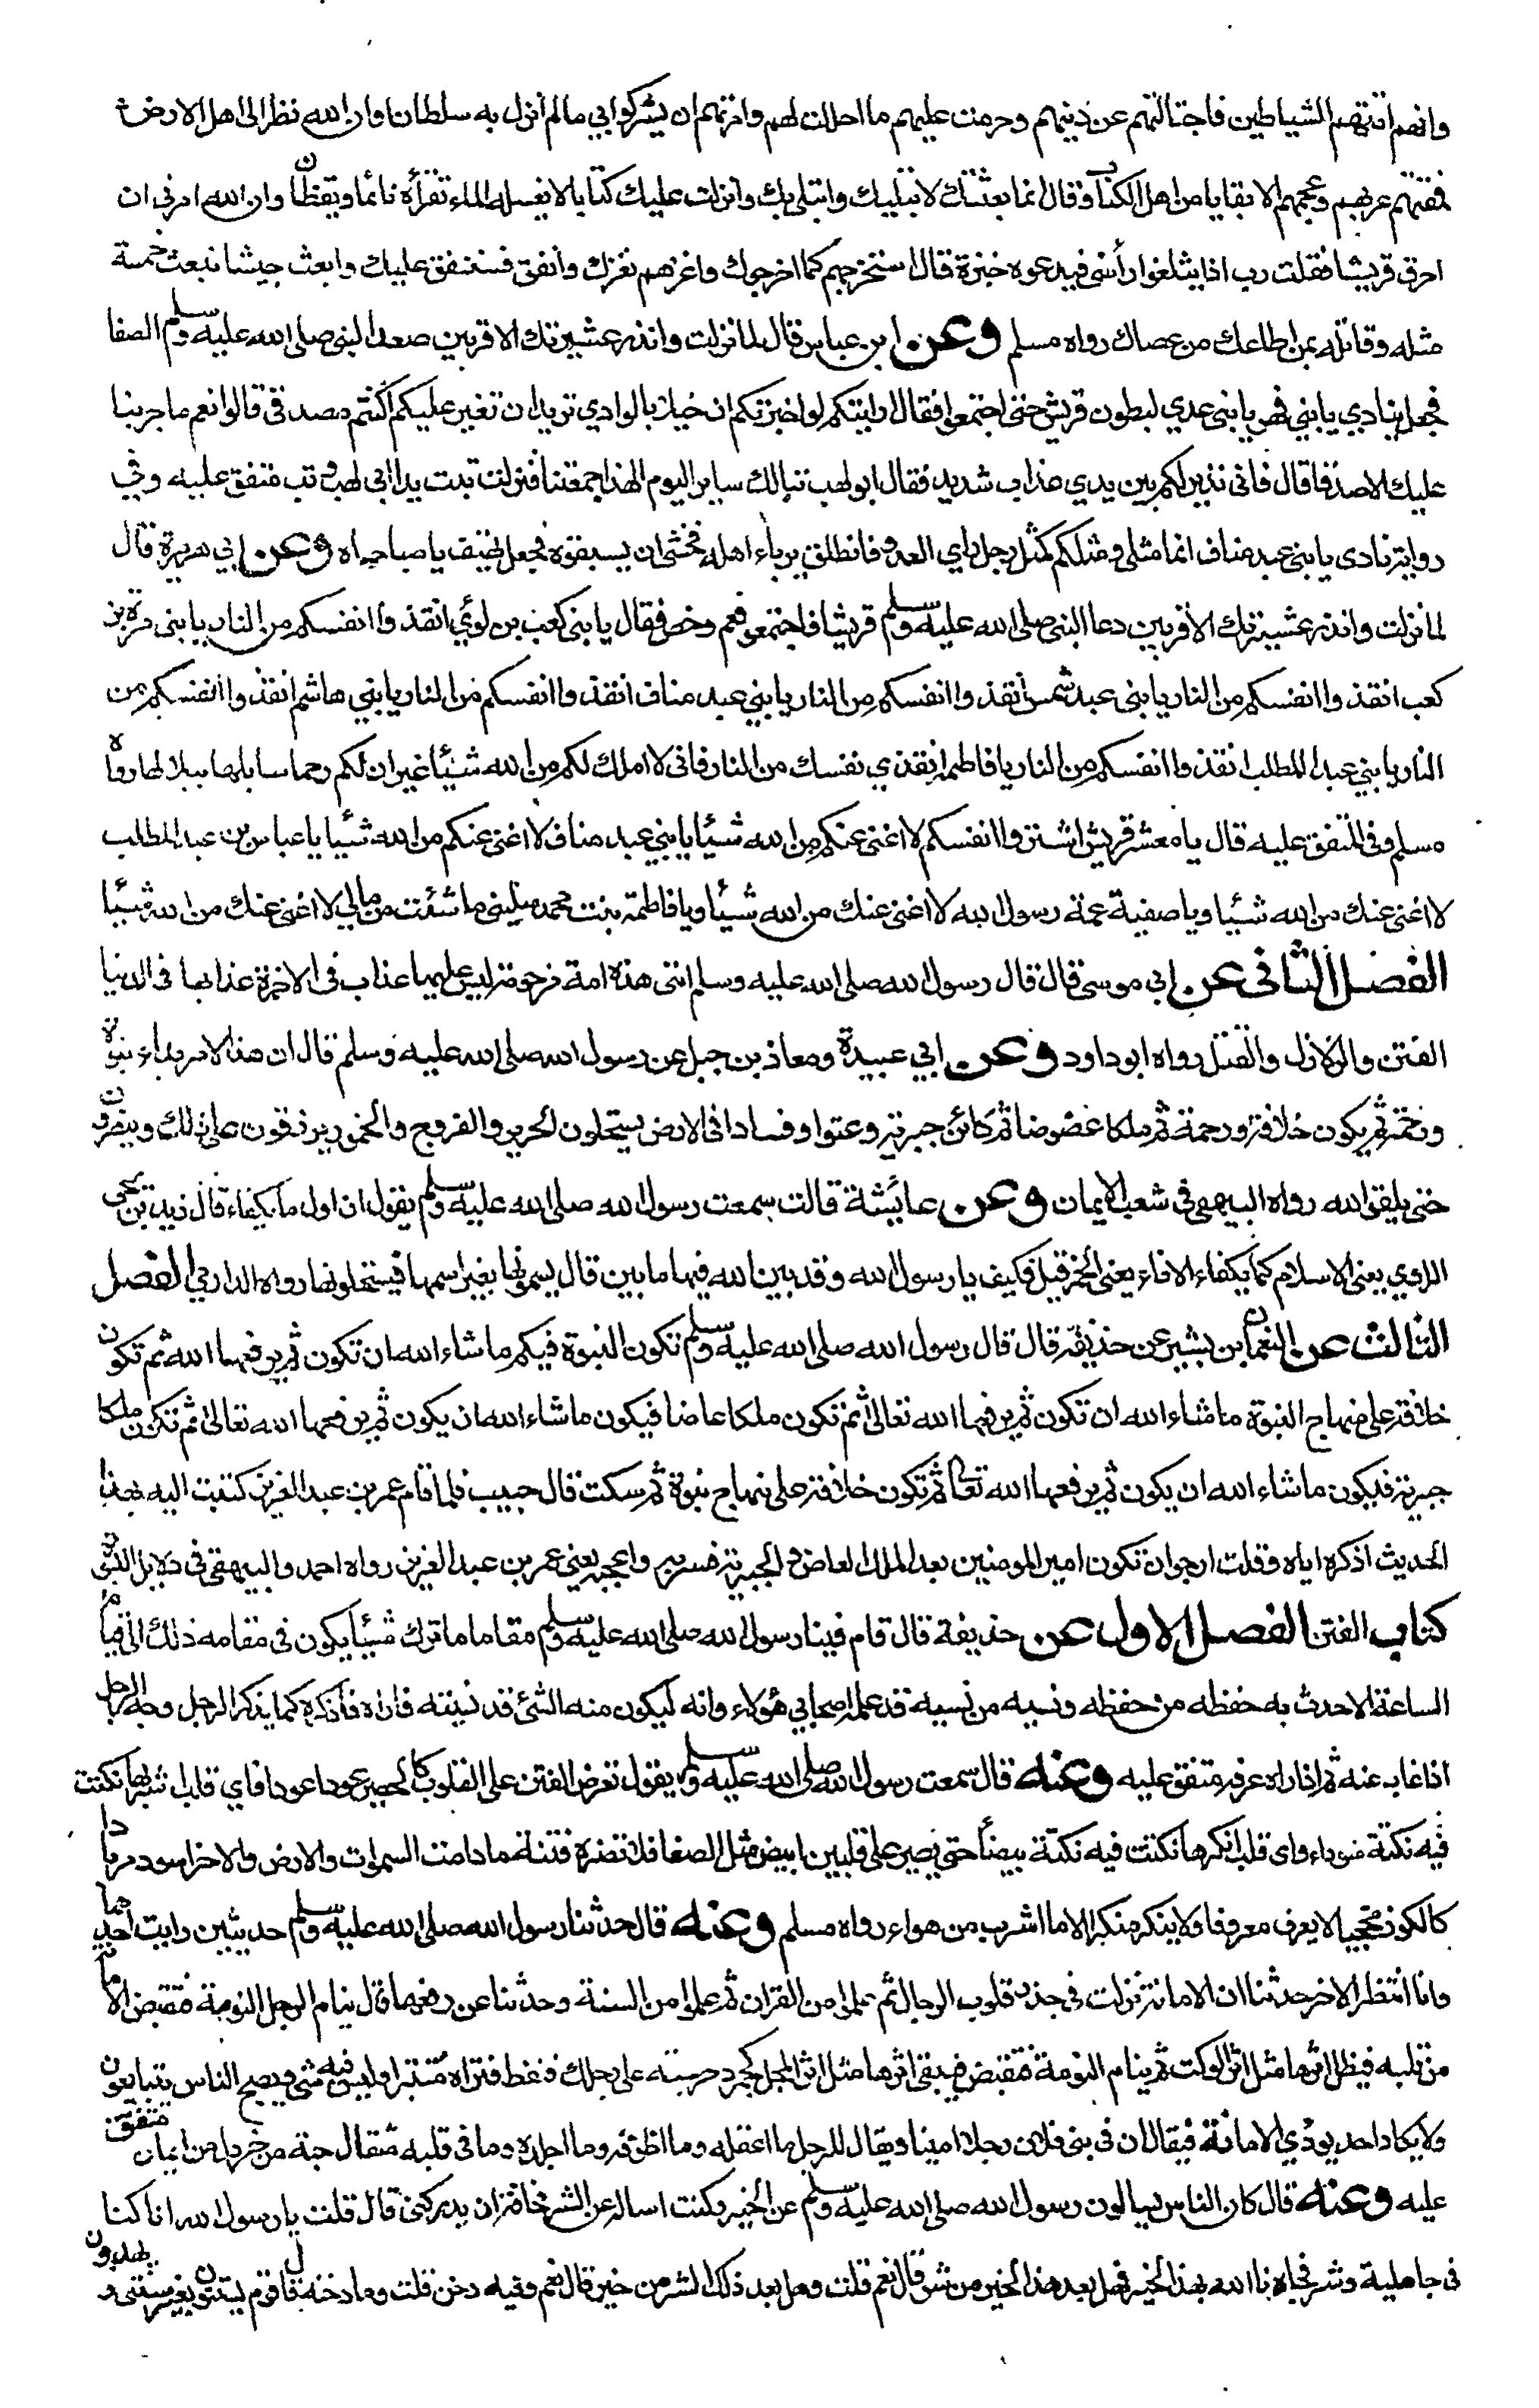 وانهم اتتهم الشياطين فاجتالتهم عن دينهم وحرمت عليهم ما احللت لهم وامرتهم ان يشركوا بي ما لم انزل به سلطانا وان الله نظر الى اهل الارض
فمقتهم عربهم وعجمهم الا بقايا من اهل الكتاب وقال انما بعثتك لابتليك وابتلي بك وانزلت عليك كتابا لا يغسله الماء تقرأه نائما ويقظان وان الله امرني ان
احرق قريشا فقلت رب اذا يثلغوا رأسي فيدعوه خبزة قال استخرجهم كما اخرجوك واغزهم نغزك وانفق فسننفق عليك وابعث جيشا نبعث خمسة
مثله وقاتل بمن اطاعك من عصاك رواه مسلم وعن ابن عباس قال لما نزلت وانذر عشيرتك الاقربين صعد النبي صلى الله عليه وسلم الصفا
فجعل ينادي يا بني فهر يا بني عدي لبطون قريش حتى اجتمعوا فقال ارايتكم لو اخبرتكم ان خيلا بالوادي تريد ان تغير عليكم اكنتم مصدقي قالوا نعم ما جربنا
عليك الا صدقا قال فاني نذير لكم بين يدي عذاب شديد فقال ابو لهب تبا لك سائر اليوم الهذا جمعتنا فنزلت تبت يدا ابي لهب وتب متفق عليه وفي
رواية نادى يا بني عبد مناف انما مثلي ومثلكم كمثل رجل راي العدو فانطلق يرباء اهله فخشي ان يسبقوه فجعل يهتف يا صباحاه وعن ابي هريرة قال
لما نزلت وانذر عشيرتك الاقربين دعا النبي صلى الله عليه وسلم قريشا فاجتمعوا فعم وخص فقال يا بني كعب بن لوي انقذوا انفسكم من النار يا بني مرة بن
كعب انقذوا انفسكم من النار يا بني عبد شمس انقذوا انفسكم من النار يا بني عبد مناف انقذوا انفسكم من النار يا بني هاشم انقذوا انفسكم من
النار يا بني عبد المطلب انقذوا انفسكم من النار يا فاطمة انقذي نفسك من النار فاني لا املك لكم من الله شيئا غير ان لكم رحما سابلها ببلالها رواه
مسلم وفي المتفق عليه قال يا معشر قريش اشتروا انفسكم لا اغني عنكم من الله شيئا يا بني عبد مناف لا اغني عنكم من الله شيئا يا عباس بن عبد المطلب
لا اغني عنك من الله شيئا ويا صفية عمة رسول الله لا اغني عنك من الله شيئا ويا فاطمة بنت محمد سليني ما شئت من مالي لا اغني عنك من الله شيئا
الفصل الثاني عن ابي موسى قال قال رسول الله صلى الله عليه وسلم امتي هذه امة مرحومة ليس عليها عذاب في الاخرة عذابها في الدنيا
الفتن والزلازل والقتل رواه ابو داود وعن ابي عبيدة ومعاذ بن جبل عن رسول الله صلى الله عليه وسلم قال ان هذا الامر بداء نبوة
ورحمة ثم يكون خلافة ورحمة ثم ملكا عضوضا ثم كائن جبرية وعتوا وفسادا في الارض يستحلون الحرير والفروج والخمور يرزقون على ذلك وينصرون
حتى يلقوا الله رواه البيهقي في شعب الايمان وعن عائشة قالت سمعت رسول الله صلى الله عليه وسلم يقول ان اول ما يكفاء قال زيد بن يحيى
الراوي يعني الاسلام كما يكفاء الاناء يعني الخمر قيل فكيف يا رسول الله وقد بين الله فيها ما بين قال يسمونها بغير اسمها فيستحلونها رواه الدارمي الفصل
الثالث عن النعمان بن بشير عن حذيفة قال قال رسول الله صلى الله عليه وسلم تكون النبوة فيكم ما شاء الله ان تكون ثم يرفعها الله ثم تكون
خلافة على منهاج النبوة ما شاء الله ان تكون ثم يرفعها الله تعالى ثم تكون ملكا عاضا فيكون ما شاء الله ان يكون ثم يرفعها الله تعالى ثم تكون ملكا
جبرية فيكون ما شاء الله ان يكون ثم يرفعها الله تعالى ثم تكون خلافة على منهاج نبوة ثم سكت قال حبيب فلما قام عمر بن عبد العزيز كتبت اليه بهذا
الحديث اذكره اياه وقلت ارجو ان تكون امير المومنين بعد الملك العاض والجبرية فسر به واعجبه يعني عمر بن عبد العزيز رواه احمد والبيهقي في دلايل النبوة
كتاب الفتن الفصل الاول عن حذيفة قال قام فينا رسول الله صلى الله عليه وسلم مقاما ما ترك شيئا يكون في مقامه ذلك الى قيام
الساعة الا حدث به حفظه من حفظه ونسيه من نسيه قد علمه اصحابي هؤلاء وانه ليكون منه الشئ قد نسيته فاراه فأذكره كما يذكر الرجل وجه الرجل
اذا غاب عنه ثم اذا راه عرفه متفق عليه وعنه قال سمعت رسول الله صلى الله عليه وسلم يقول تعرض الفتن على القلوب كالحصير عودا عودا فاي قلب اشربها نكتت
فيه نكتة سوداء واى قلب انكرها نكتت فيه نكتة بيضأ حتى يصير على قلبين ابيض مثل الصفا فلا تضره فتنة ما دامت السموات والارض والاخر اسود مربادا
كالكوز مجخيا لا يعرف معروفا ولا ينكر منكرا الا ما اشرب من هواه رواه مسلم وعنه قال حدثنا رسول الله صلى الله عليه وسلم حديثين رايت احدهما
وانا انتظر الاخر حدثنا ان الامانة نزلت في جذر قلوب الرجال ثم علموا من القران ثم علموا من السنة وحدثنا عن رفعها قال ينام الرجل النومة فتقبض الامانة
من قلبه فيظل اثرها مثل اثر الوكت ثم ينام النومة فتقبض فيبقى اثرها مثل اثر المجل كجمر دحرجته على رجلك فنفط فتراه منتبرا وليس فيه شئ ويصبح الناس يتبايعون
ولا يكاد احد يودي الامانة فيقال ان في بني فلان رجلا امينا ويقال للرجل ما اعقله وما اظرفه وما اجلده وما في قلبه مثقال حبة من خردل من ايمان متفق
عليه وعنه قال كان الناس يسالون رسول الله صلى الله عليه وسلم عن الخير وكنت اساله عن الشر مخافة ان يدركني قال قلت يا رسول الله انا كنا
في جاهلية وشر فجاءنا الله بهذا الخير فهل بعد هذا الخير من شر قال نعم قلت وهل بعد ذلك الشر من خير قال نعم وفيه دخن قلت وما دخنه قال قوم يستنون بغير سنتي ويهدون